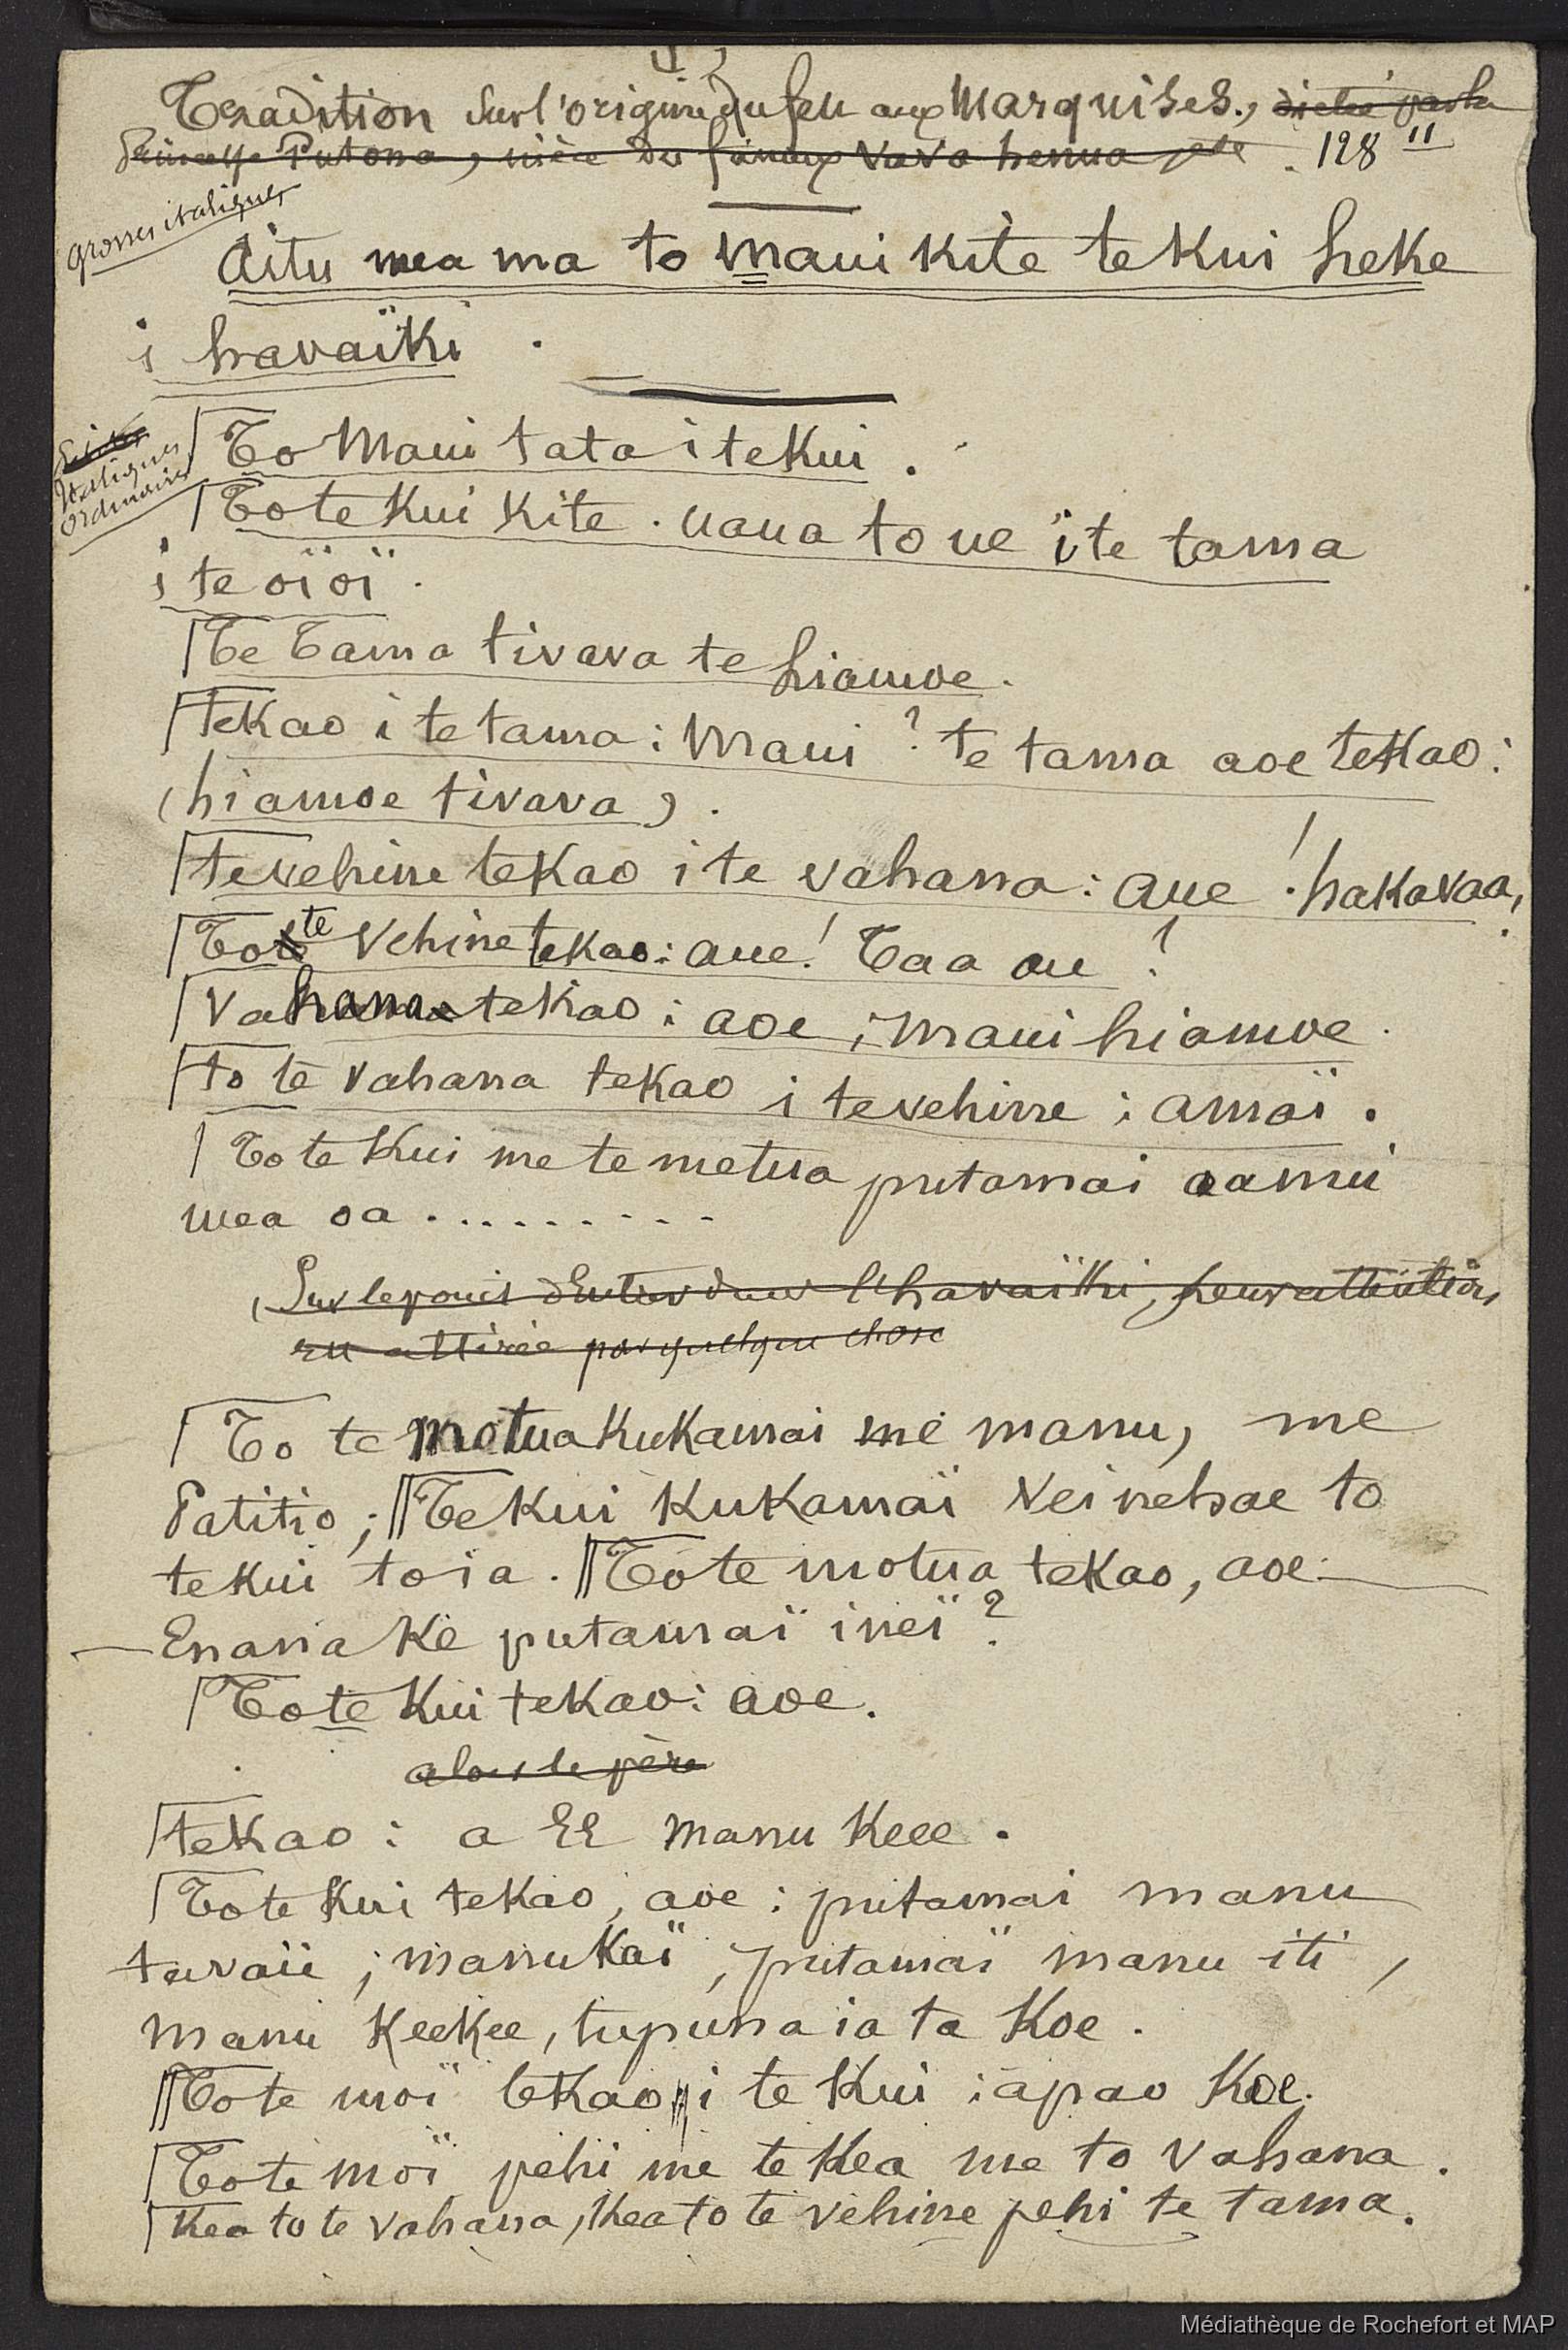 Tradition sur l'origine du feu aux Marquises, dictée par la
Princesse Putona, nièce du fameux Vava henua 128 "
grosses italiques
Aitu mea ma to maui kite te kui heke
i havaïki .
Italiques
ordinaires
To Maui tata i te kui .
To te kui kite . uaua to ue i te tama
i te oï oï .
Te Tama tivava te hiamoe .
tekao i te tama : Maui ? te tama aoe tekao :
(hiamoe tivava) .
te vehine tekao i te vahana : aue ! hakavaa,
To te vehine tekao : aue ! Taa au ?
Vahana tekao : aoe ; maui hiamoe .
to te vahana tekao i te vehine : amaï .
To te kui me te metua putamai aamii
mea oa . . . . . . . . . .
(Sur le point d'Entrer dans l'havaïki, leur attention,
en attirée par quelque chose
To te motua kukamai me manu, me
Patitio ; Te kui kukamaï vei nehae to
te kui toia . To te motua tekao, aoe . —
— Enana ke putamaï ineï ?
To te kui tekao : aoe .
alors le père
tekao : a EE manu keee .
To te kui tekao, aoe : putamai manu
tavaii ; manu kaï , putamaï manu iti ,
manu keekee, tupuna ia ta koe .
To te moï tekao i te kui : apao koe .
To te moï pehi me te kea me to vahana .
Kea to te vahana, kea to te vehine pehi te tama .
Médiathèque de Rochefort et MAP